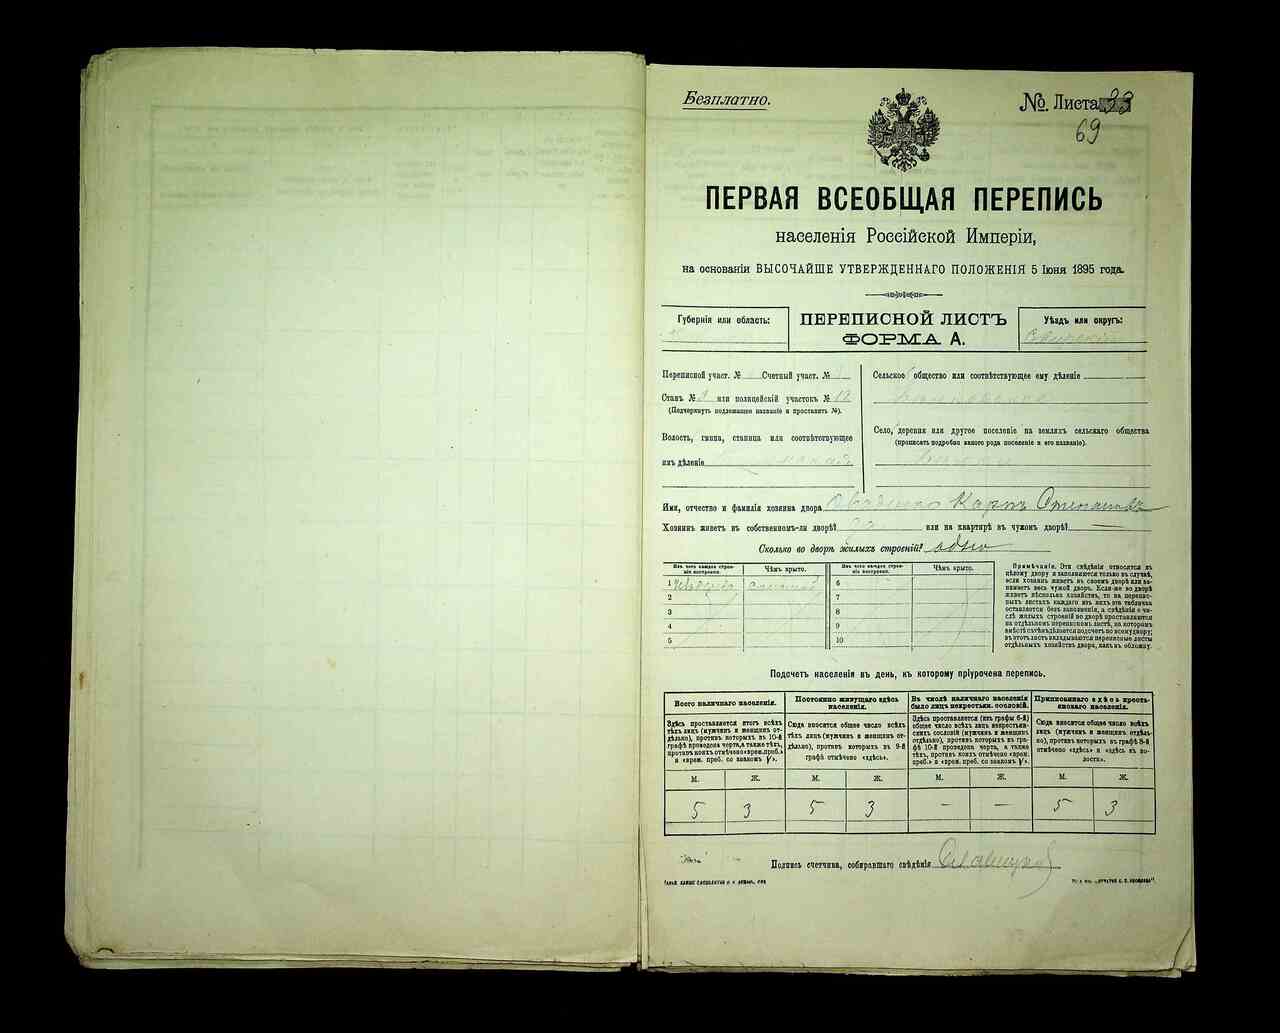 Безплатно.
№. Листа
69
ПЕРВАЯ ВСЕОБЩАЯ ПЕРЕПИСЬ
населенія Россійской Имперіи,
на основаніи ВЫСОЧАЙШЕ УТВЕРЖДЕННАГО ПОЛОЖЕНІЯ 5 Іюня 1895 года.
Губернія или область:
ПЕРЕПИСНОЙ ЛИСТЪ
ФОРМА А.
Уѣздъ или округъ:
Переписной участ. № Счетный участ. №
Станъ № или полицейскій участокъ №
(Подчеркнуть подлежащее названіе и проставить №).
Волость, гмина, станица или соотвѣтствующее
имъ дѣленіе
Сельское общество или соотвѣтствующее ему дѣленіе
Село, деревня или другое поселеніе на земляхъ сельскаго общества
(прописать подробно какого рода поселеніе и его названіе).
Имя, отчество и фамилія хозяина двора Карпъ Степановъ
Хозяинъ живетъ въ собственномъ-ли дворѣ? да или на квартирѣ въ чужомъ дворѣ? —
Сколько во дворѣ жилыхъ строеній? одно
Изъ чего каждое строеніе построено.
Чѣмъ крыто.
Изъ чего каждое строеніе построено.
Чѣмъ крыто.
1 соломой
2
3
4
5
6
7
8
9
10
Примѣчаніе. Эти свѣдѣнія относятся къ
цѣлому двору и заполняются только въ случаѣ,
если хозяинъ живетъ въ своемъ дворѣ или занимаетъ
весь чужой дворъ. Если-же во дворѣ
живетъ нѣсколько хозяйствъ, то на переписныхъ
листахъ каждаго изъ нихъ эта табличка
оставляется безъ заполненія, а свѣдѣнія о числѣ
жилыхъ строеній во дворѣ проставляются
на отдѣльномъ переписномъ листѣ, на которомъ
вмѣстѣ съ тѣмъ дѣлается подсчетъ по всему двору;
въ этотъ листъ вкладываются переписные листы
отдѣльныхъ хозяйствъ двора, какъ въ обложку.
Подсчетъ населенія въ день, къ которому пріурочена перепись.
Всего наличнаго населенія.
Постоянно живущаго здѣсь населенія.
Въ числѣ наличнаго населенія было лицъ некрестьян. сословій.
Приписаннаго здѣсь крестьянскаго населенія.
Здѣсь проставляется итогъ всѣхъ
тѣхъ лицъ (мужчинъ и женщинъ отдѣльно),
противъ которыхъ въ 10-й
графѣ проведена черта, а также тѣхъ,
противъ коихъ отмѣчено «врем. преб.»
и «врем. преб. со знакомъ V».
Сюда вносится общее число всѣхъ
тѣхъ лицъ (мужчинъ и женщинъ отдѣльно),
противъ которыхъ въ 9-й
графѣ отмѣчено «здѣсь».
Здѣсь проставляется (изъ графы 6-й)
общее число всѣхъ лицъ некрестьянскихъ
сословій (мужчинъ и женщинъ
отдѣльно), противъ которыхъ въ графѣ
10-й проведена черта, а также
тѣхъ, противъ коихъ отмѣчено «врем.
преб.» и «врем. преб. со знакомъ V».
Сюда вносится общее число всѣхъ
лицъ (мужчинъ и женщинъ отдѣльно),
противъ которыхъ въ графѣ 8-й
отмѣчено «здѣсь» и «здѣсь въ волости».
М. Ж. М. Ж. М. Ж. М. Ж.
5 3 5 3 — — 5 3
Подпись счетчика, собиравшаго свѣдѣнія